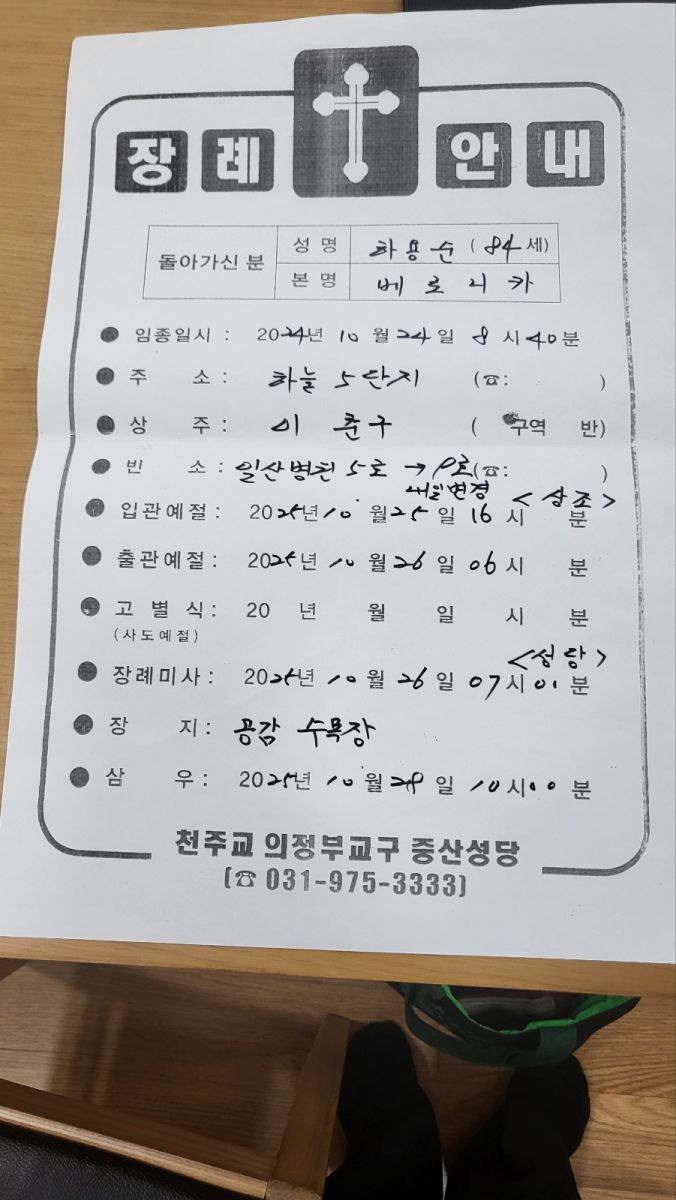 장례 안내
돌아가신 분
성명 하용순 (84세)
본명 베로니카
임종일시 : 2024년 10월 24일 8시 40분
주 소 : 하늘 5단지 (☎: )
상 주 : 이 춘구 ( 구역 반)
빈 소 : 일산병원 5호 → 9호 (☎: )
내일변경 <상조>
입관예절 : 2025년 10월 25일 16시 분
출관예절 : 2025년 10월 26일 06시 분
고 별 식 : 20 년 월 일 시 분
(사도예절)
<성당>
장례미사 : 2025년 10월 26일 07시 01분
장 지 : 공감 수목장
삼 우 : 2025년 10월 28일 10시 00분
천주교 의정부교구 중산성당
(☎ 031-975-3333)